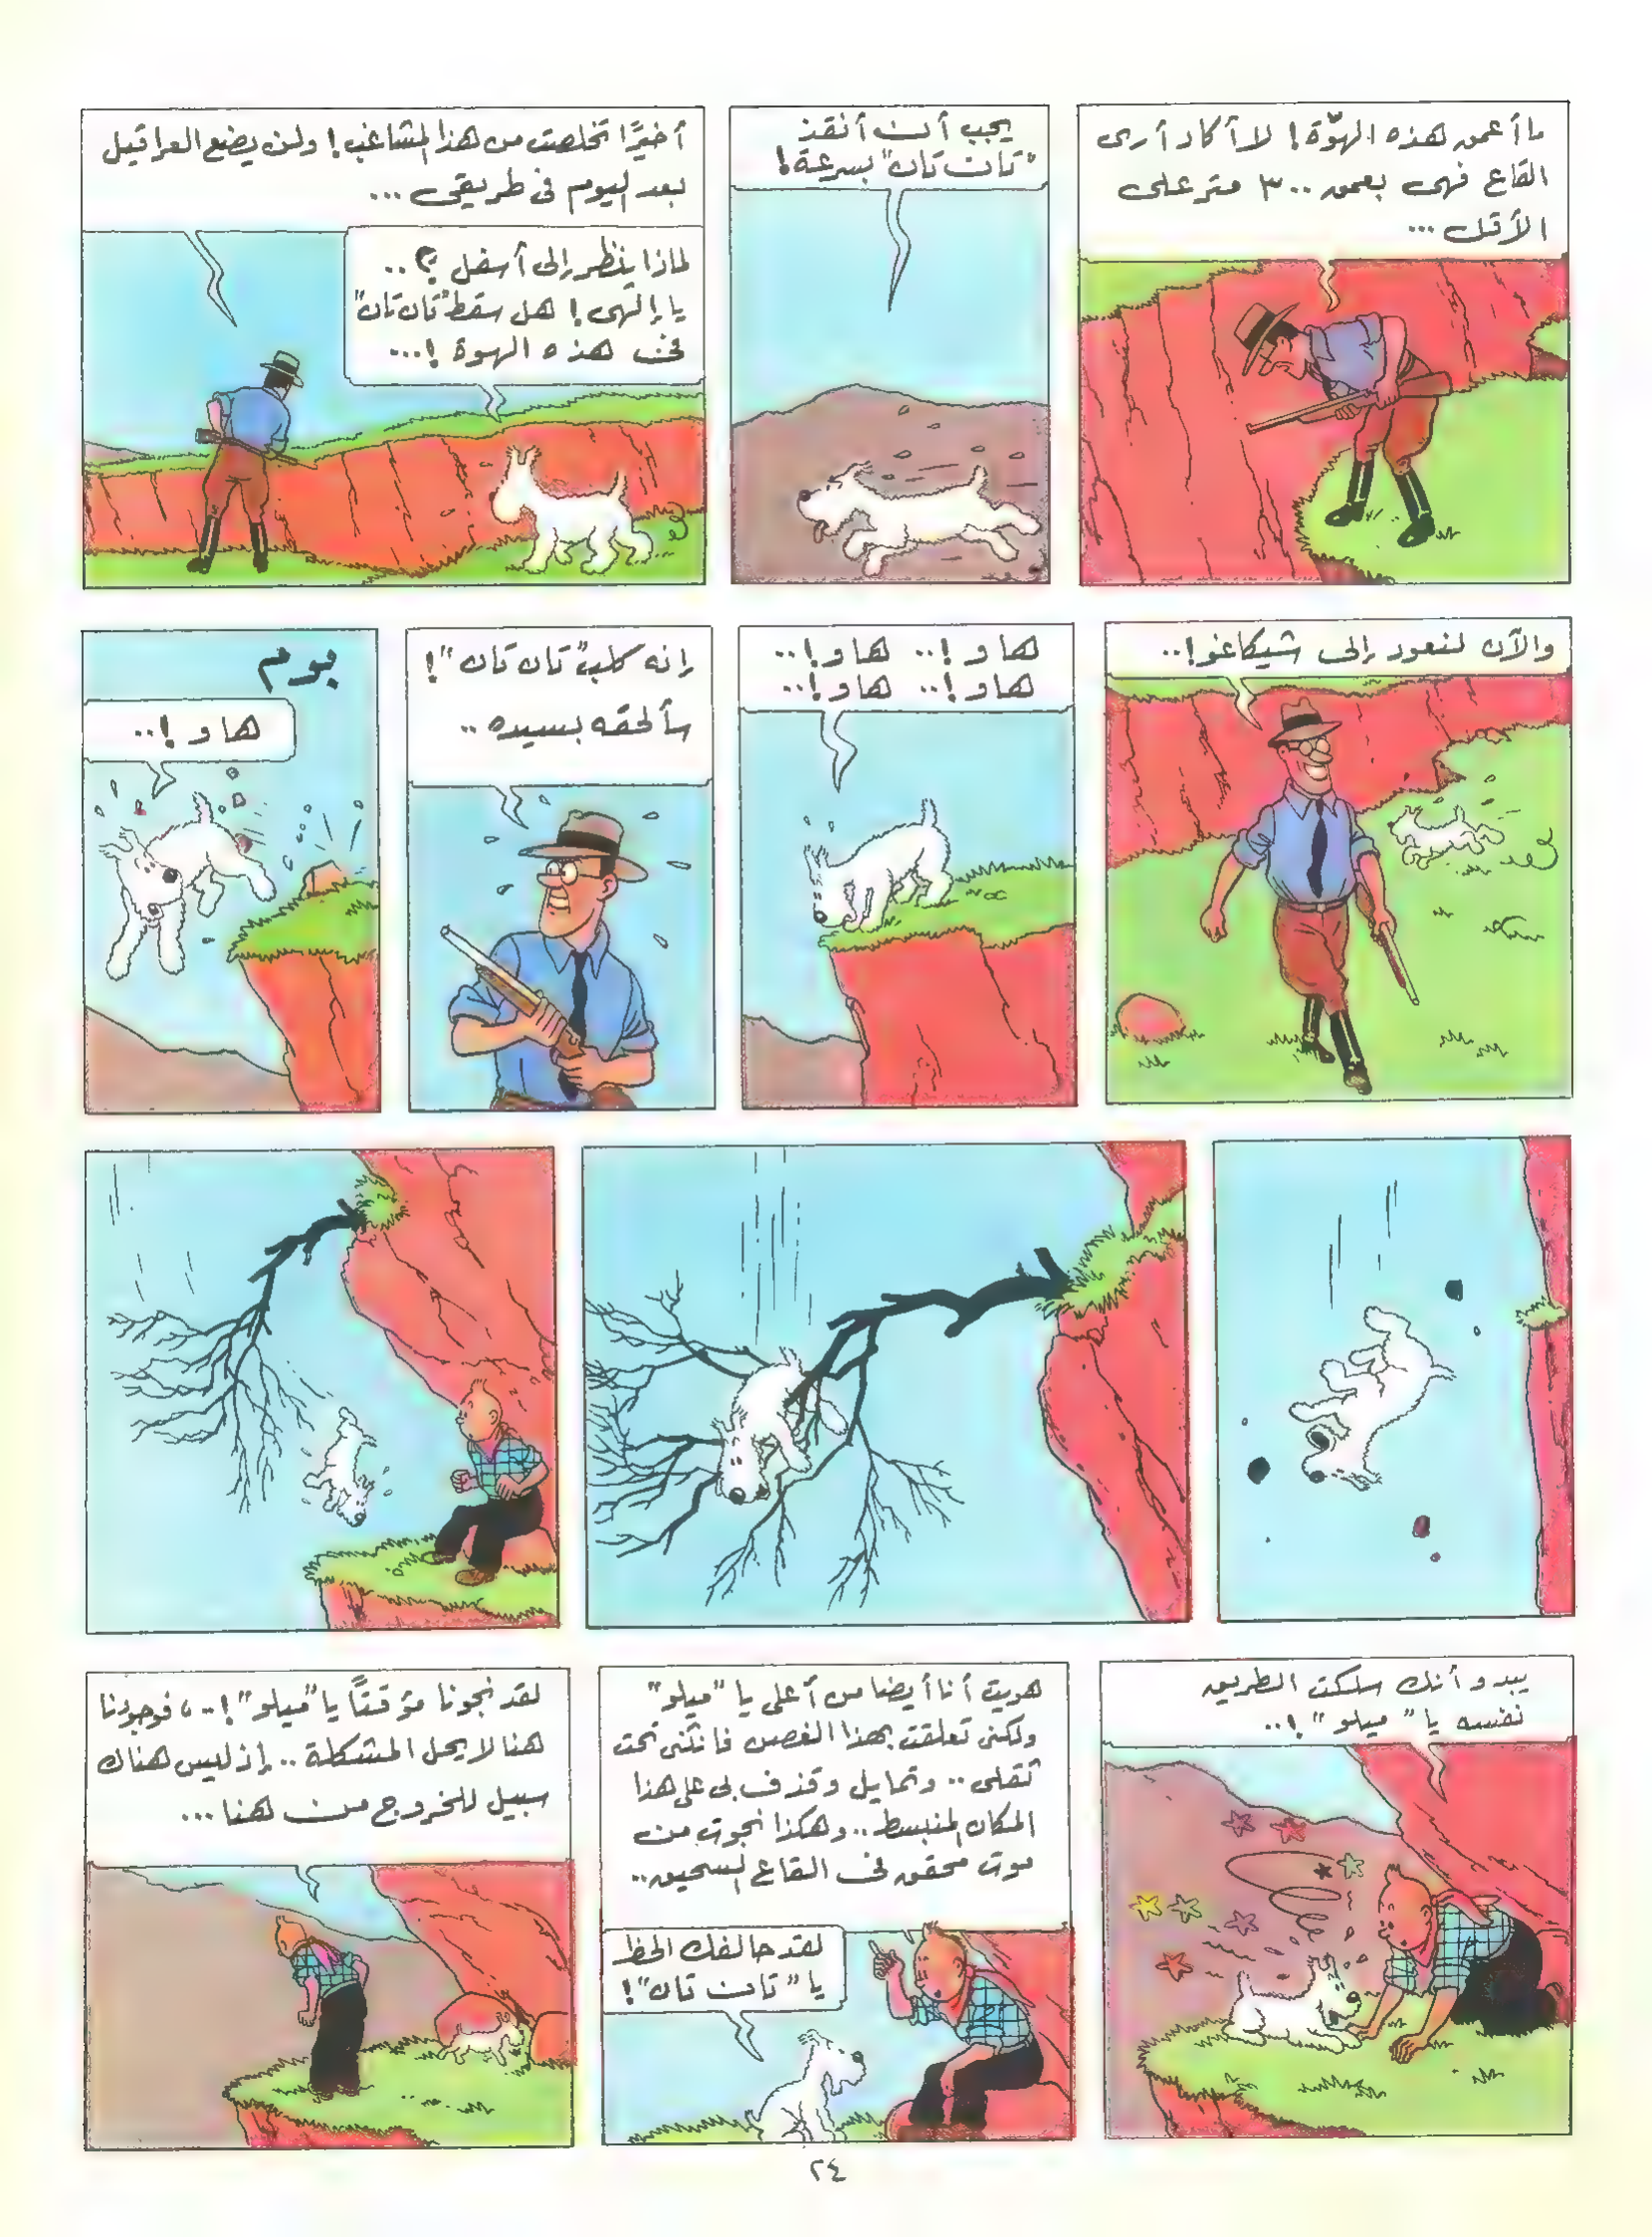 ما أعمق هذه الهوّة! لا أكاد أرى
القاع فهى بعمق ٣٠٠ متر على
الأقل...
يجب أن أنقذ
"تان تان" بسرعة!
أخيرًا تخلصت من هذا المشاغب! ولن يضع العراقيل
بعد اليوم فى طريقى...
لماذا ينظر إلى أسفل ؟..
يا إلهى! هل سقط "تان تان"
فى هذه الهوة !...
والآن لنعود إلى شيكاغو!..
هاو !.. هاو!..
هاو !.. هاو!..
إنه كلب "تان تان"!
سألحقه بسيده..
بوم
هاو !..
يبدو أنك سلكت الطريق
نفسه يا "ميلو" !..
هويت أنا أيضا من أعلى يا "ميلو"
ولكنى تعلقت بهذا الغصن فانثنى تحت
ثقلى.. وتمايل وقذف بى على هذا
المكان المنبسط.. وهكذا نجوت من
موت محقق فى القاع السحيق..
لقد حالفك الحظ
يا "تان تان"!
لقد نجونا مؤقتًا يا "ميلو"!..، فوجودنا
هنا لا يحل المشكلة.. إذ ليس هناك
سبيل للخروج من هنا...
٢٤